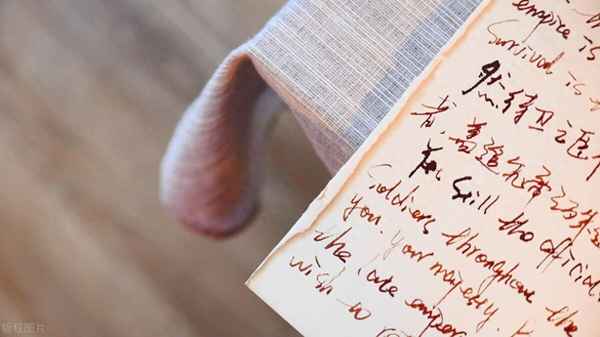 empire is
Survival is
然侍卫之臣
者,盖追先帝之殊
Yet, still the official
Soldiers throughout the
you. Your majesty.
the late emper
wish to re
版权图片